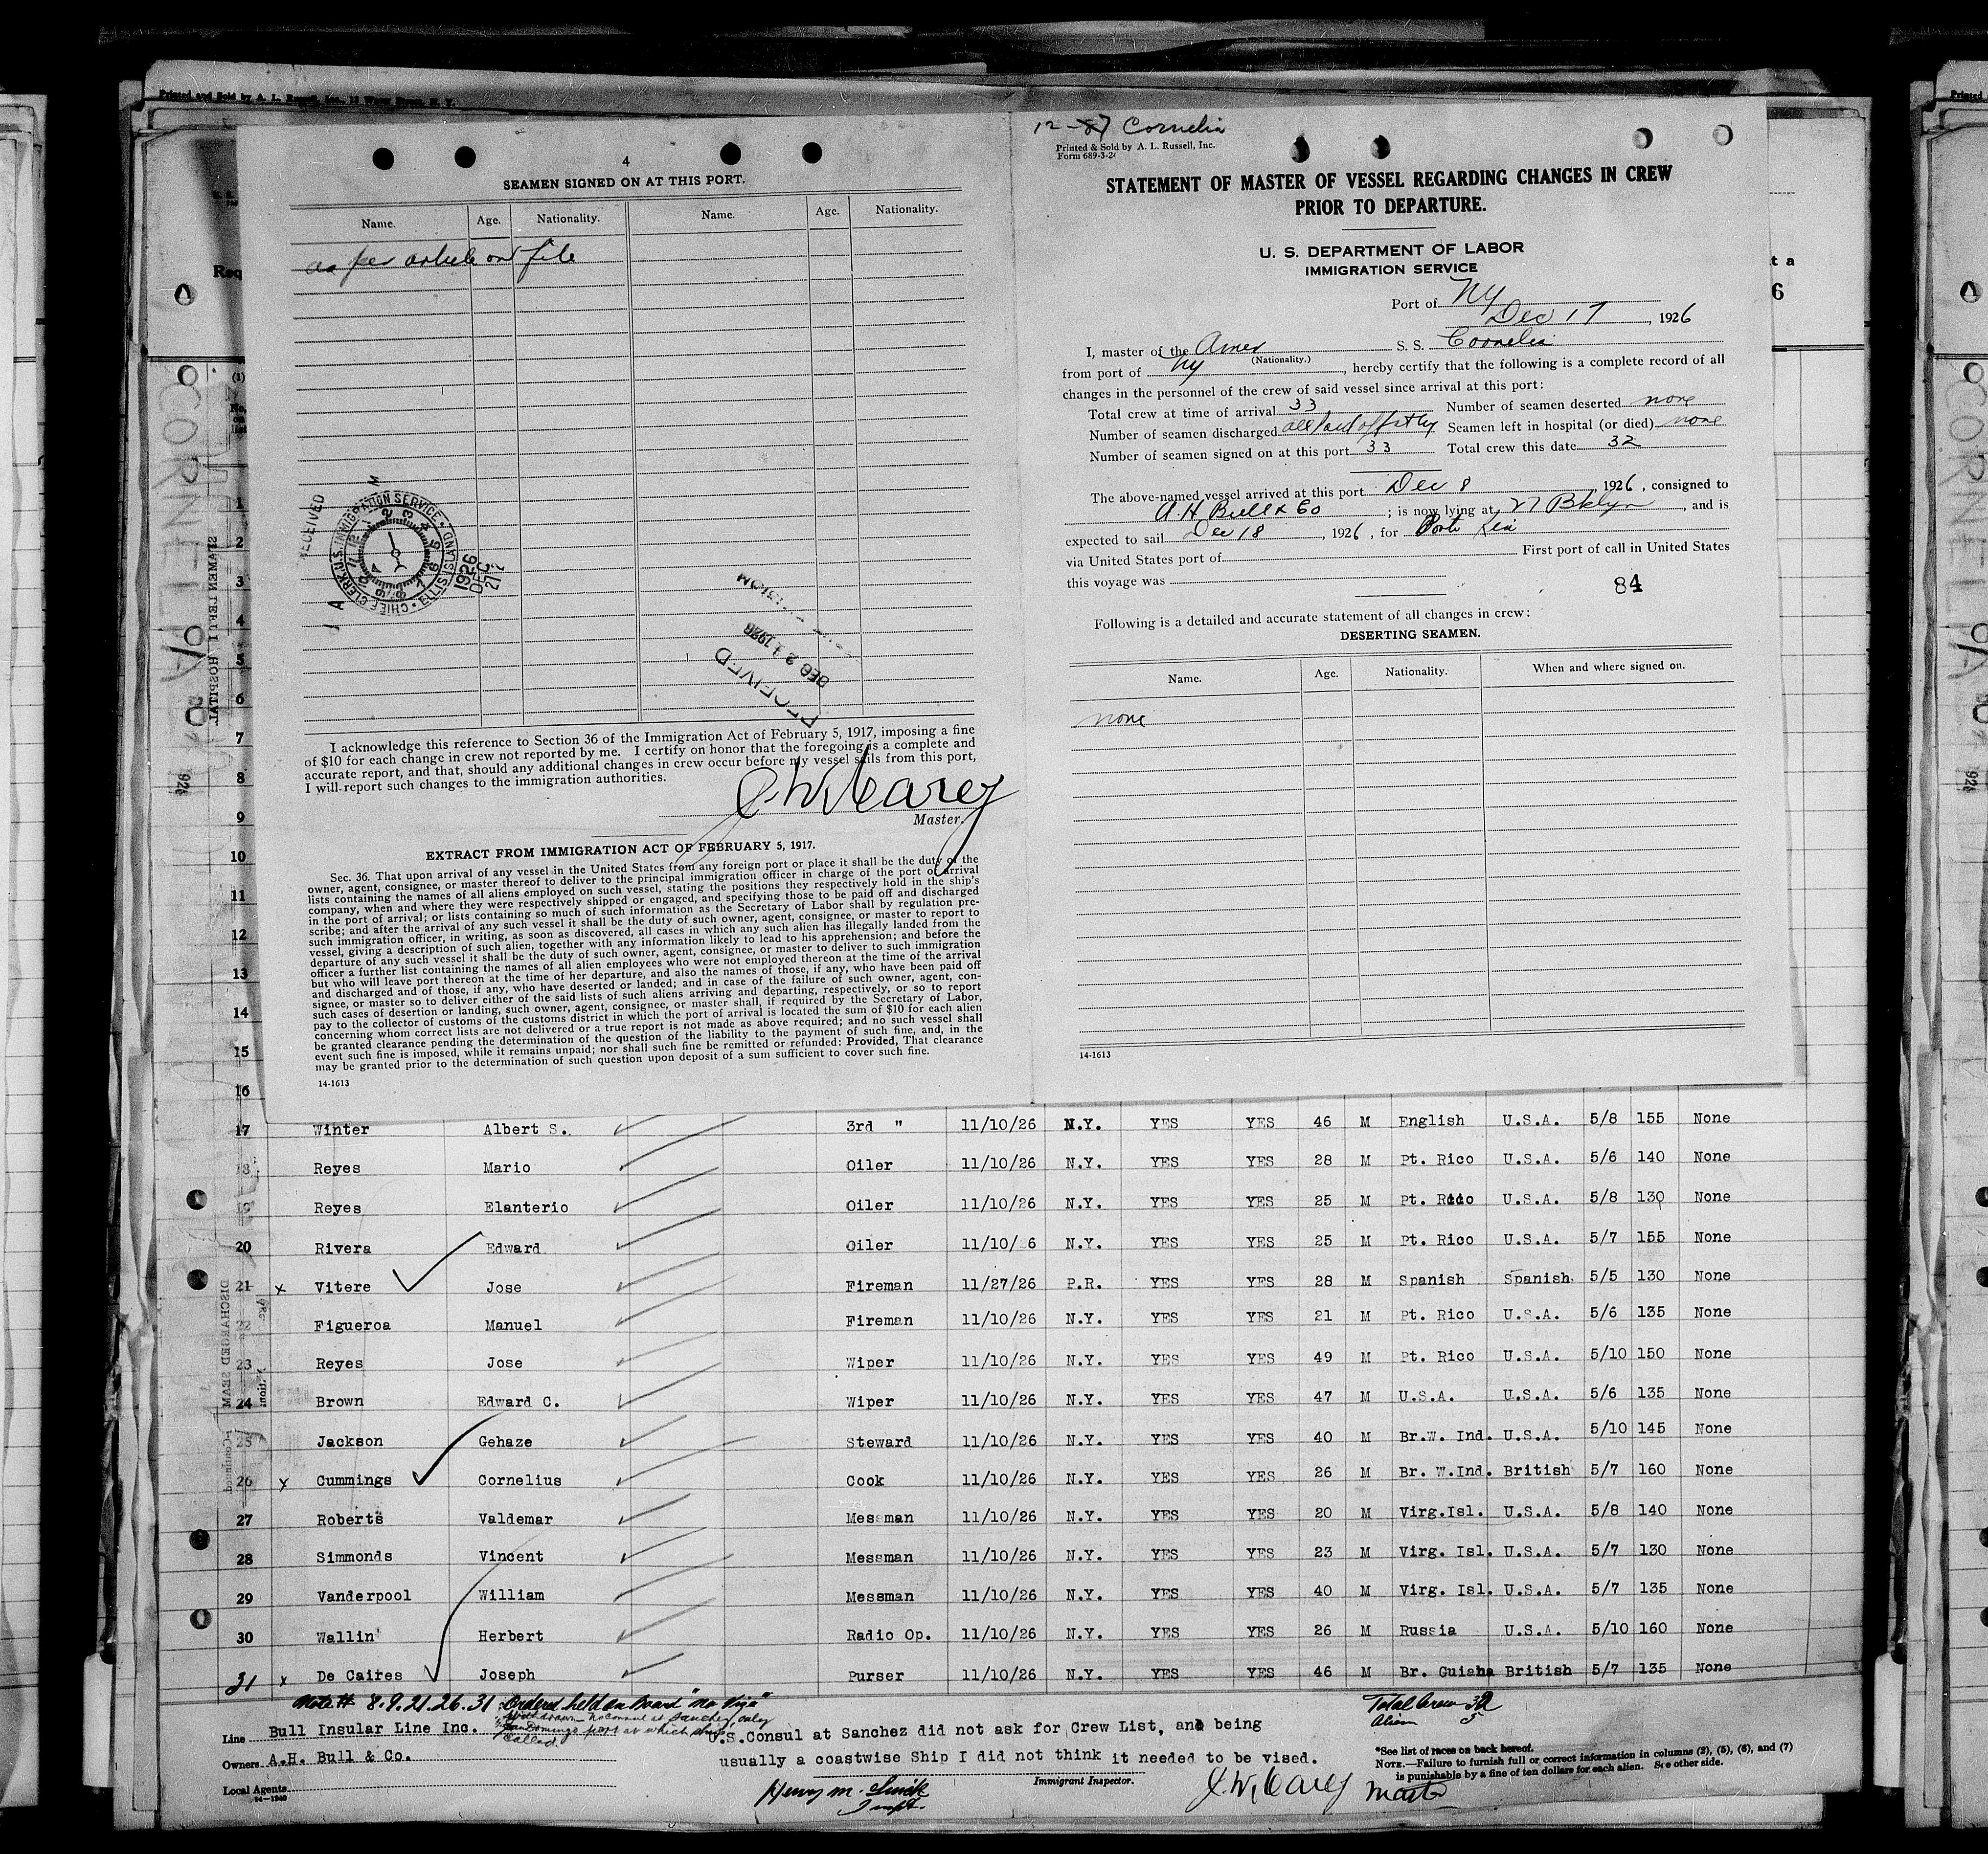 Printed and Sold by A. L. Russell, Inc., 12 Water Street, N. Y.
4
SEAMEN SIGNED ON AT THIS PORT.
Name. Age. Nationality. Name. Age. Nationality.
as per article on file
RECEIVED
CHIEF CLERK. U.S. IMMIGRATION SERVICE · ELLIS ISLAND
1926
DEC
RECEIVED
DEC 21 1926
I acknowledge this reference to Section 36 of the Immigration Act of February 5, 1917, imposing a fine
of $10 for each change in crew not reported by me. I certify on honor that the foregoing is a complete and
accurate report, and that, should any additional changes in crew occur before my vessel sails from this port,
I will report such changes to the immigration authorities.
J. W. Carey
Master.
EXTRACT FROM IMMIGRATION ACT OF FEBRUARY 5, 1917.
Sec. 36. That upon arrival of any vessel in the United States from any foreign port or place it shall be the duty of the
owner, agent, consignee, or master thereof to deliver to the principal immigration officer in charge of the port of arrival
lists containing the names of all aliens employed on such vessel, stating the positions they respectively hold in the ship's
company, when and where they were respectively shipped or engaged, and specifying those to be paid off and discharged
in the port of arrival; or lists containing so much of such information as the Secretary of Labor shall by regulation pre-
scribe; and after the arrival of any such vessel it shall be the duty of such owner, agent, consignee, or master to report to
such immigration officer, in writing, as soon as discovered, all cases in which any such alien has illegally landed from the
vessel, giving a description of such alien, together with any information likely to lead to his apprehension; and before the
departure of any such vessel it shall be the duty of such owner, agent, consignee, or master to deliver to such immigration
officer a further list containing the names of all alien employees who were not employed thereon at the time of the arrival
but who will leave port thereon at the time of her departure, and also the names of those, if any, who have been paid off
and discharged and of those, if any, who have deserted or landed; and in case of the failure of such owner, agent, con-
signee, or master so to deliver either of the said lists of such aliens arriving and departing, respectively, or so to report
such cases of desertion or landing, such owner, agent, consignee, or master shall, if required by the Secretary of Labor,
pay to the collector of customs of the customs district in which the port of arrival is located the sum of $10 for each alien
concerning whom correct lists are not delivered or a true report is not made as above required; and no such vessel shall
be granted clearance pending the determination of the question of the liability to the payment of such fine, and, in the
event such fine is imposed, while it remains unpaid; nor shall such fine be remitted or refunded: Provided, That clearance
may be granted prior to the determination of such question upon deposit of a sum sufficient to cover such fine.
14-1613
Cornelia
Printed & Sold by A. L. Russell, Inc.
Form 689-3-26
STATEMENT OF MASTER OF VESSEL REGARDING CHANGES IN CREW
PRIOR TO DEPARTURE.
U. S. DEPARTMENT OF LABOR
IMMIGRATION SERVICE
Port of NY
Dec 17, 1926
I, master of the Amer S. S. Cornelia
(Nationality.)
from port of NY, hereby certify that the following is a complete record of all
changes in the personnel of the crew of said vessel since arrival at this port:
Total crew at time of arrival 33 Number of seamen deserted none
Number of seamen discharged all paid off at NY Seamen left in hospital (or died) none
Number of seamen signed on at this port 33 Total crew this date 32
The above-named vessel arrived at this port Dec 8, 1926, consigned to
A. H. Bull & Co; is now lying at Bklyn, and is
expected to sail Dec 18, 1926, for Porto Rico
via United States port of First port of call in United States
this voyage was
84
Following is a detailed and accurate statement of all changes in crew:
DESERTING SEAMEN.
Name. Age. Nationality. When and where signed on.
none
14-1613
CORNELIA
1
2
3
4
5
6
7
8
9
10
11
12
13
14
15
16
17 Winter Albert S. 3rd " 11/10/26 N.Y. YES YES 46 M English U.S.A. 5/8 155 None
18 Reyes Mario Oiler 11/10/26 N.Y. YES YES 28 M Pt. Rico U.S.A. 5/6 140 None
19 Reyes Elanterio Oiler 11/10/26 N.Y. YES YES 25 M Pt. Rico U.S.A. 5/8 130 None
20 Rivera Edward Oiler 11/10/26 N.Y. YES YES 25 M Pt. Rico U.S.A. 5/7 155 None
21 x Vitere Jose Fireman 11/27/26 P.R. YES YES 28 M Spanish Spanish 5/5 130 None
22 Figueroa Manuel Fireman 11/10/26 N.Y. YES YES 21 M Pt. Rico U.S.A. 5/6 135 None
23 Reyes Jose Wiper 11/10/26 N.Y. YES YES 49 M Pt. Rico U.S.A. 5/10 150 None
24 Brown Edward C. Wiper 11/10/26 N.Y. YES YES 47 M U.S.A. U.S.A. 5/6 135 None
25 Jackson Gehaze Steward 11/10/26 N.Y. YES YES 40 M Br.W. Ind. U.S.A. 5/10 145 None
26 x Cummings Cornelius Cook 11/10/26 N.Y. YES YES 26 M Br. W.Ind. British 5/7 160 None
27 Roberts Valdemar Messman 11/10/26 N.Y. YES YES 20 M Virg.Isl. U.S.A. 5/8 140 None
28 Simmonds Vincent Messman 11/10/26 N.Y. YES YES 23 M Virg. Isl. U.S.A. 5/7 130 None
29 Vanderpool William Messman 11/10/26 N.Y. YES YES 40 M Virg. Isl. U.S.A. 5/7 135 None
30 Wallin Herbert Radio Op. 11/10/26 N.Y. YES YES 26 M Russia U.S.A. 5/10 160 None
31 x De Caires Joseph Purser 11/10/26 N.Y. YES YES 46 M Br. Guiana British 5/7 135 None
Note # 8.9.21.26.31 Ordered held on board "no visa"
Withdrawn - No consul at Sanchez, only
San Domingo port at which ship
called.
Total Crew 32
Alien 5
Line Bull Insular Line Inc.
Owners A.H. Bull & Co.
Local Agents
14-1240
U.S.Consul at Sanchez did not ask for Crew List, and being
usually a coastwise Ship I did not think it needed to be vised.
Immigrant Inspector.
Henry M.
Inspt.
J. W. Carey Master
*See list of races on back hereof.
NOTE.—Failure to furnish full or correct information in columns (2), (5), (6), and (7)
is punishable by a fine of ten dollars for each alien. See other side.